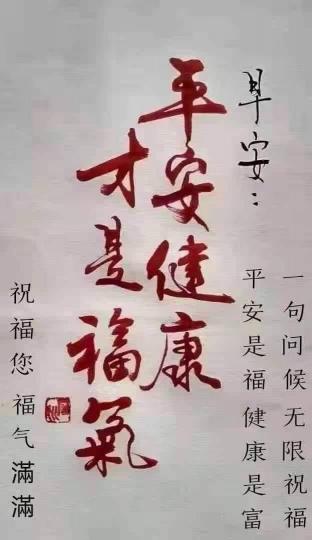 早安：
一句问候无限祝福
平安是福健康是富
平安健康
才是福氣
祝福您福气滿滿